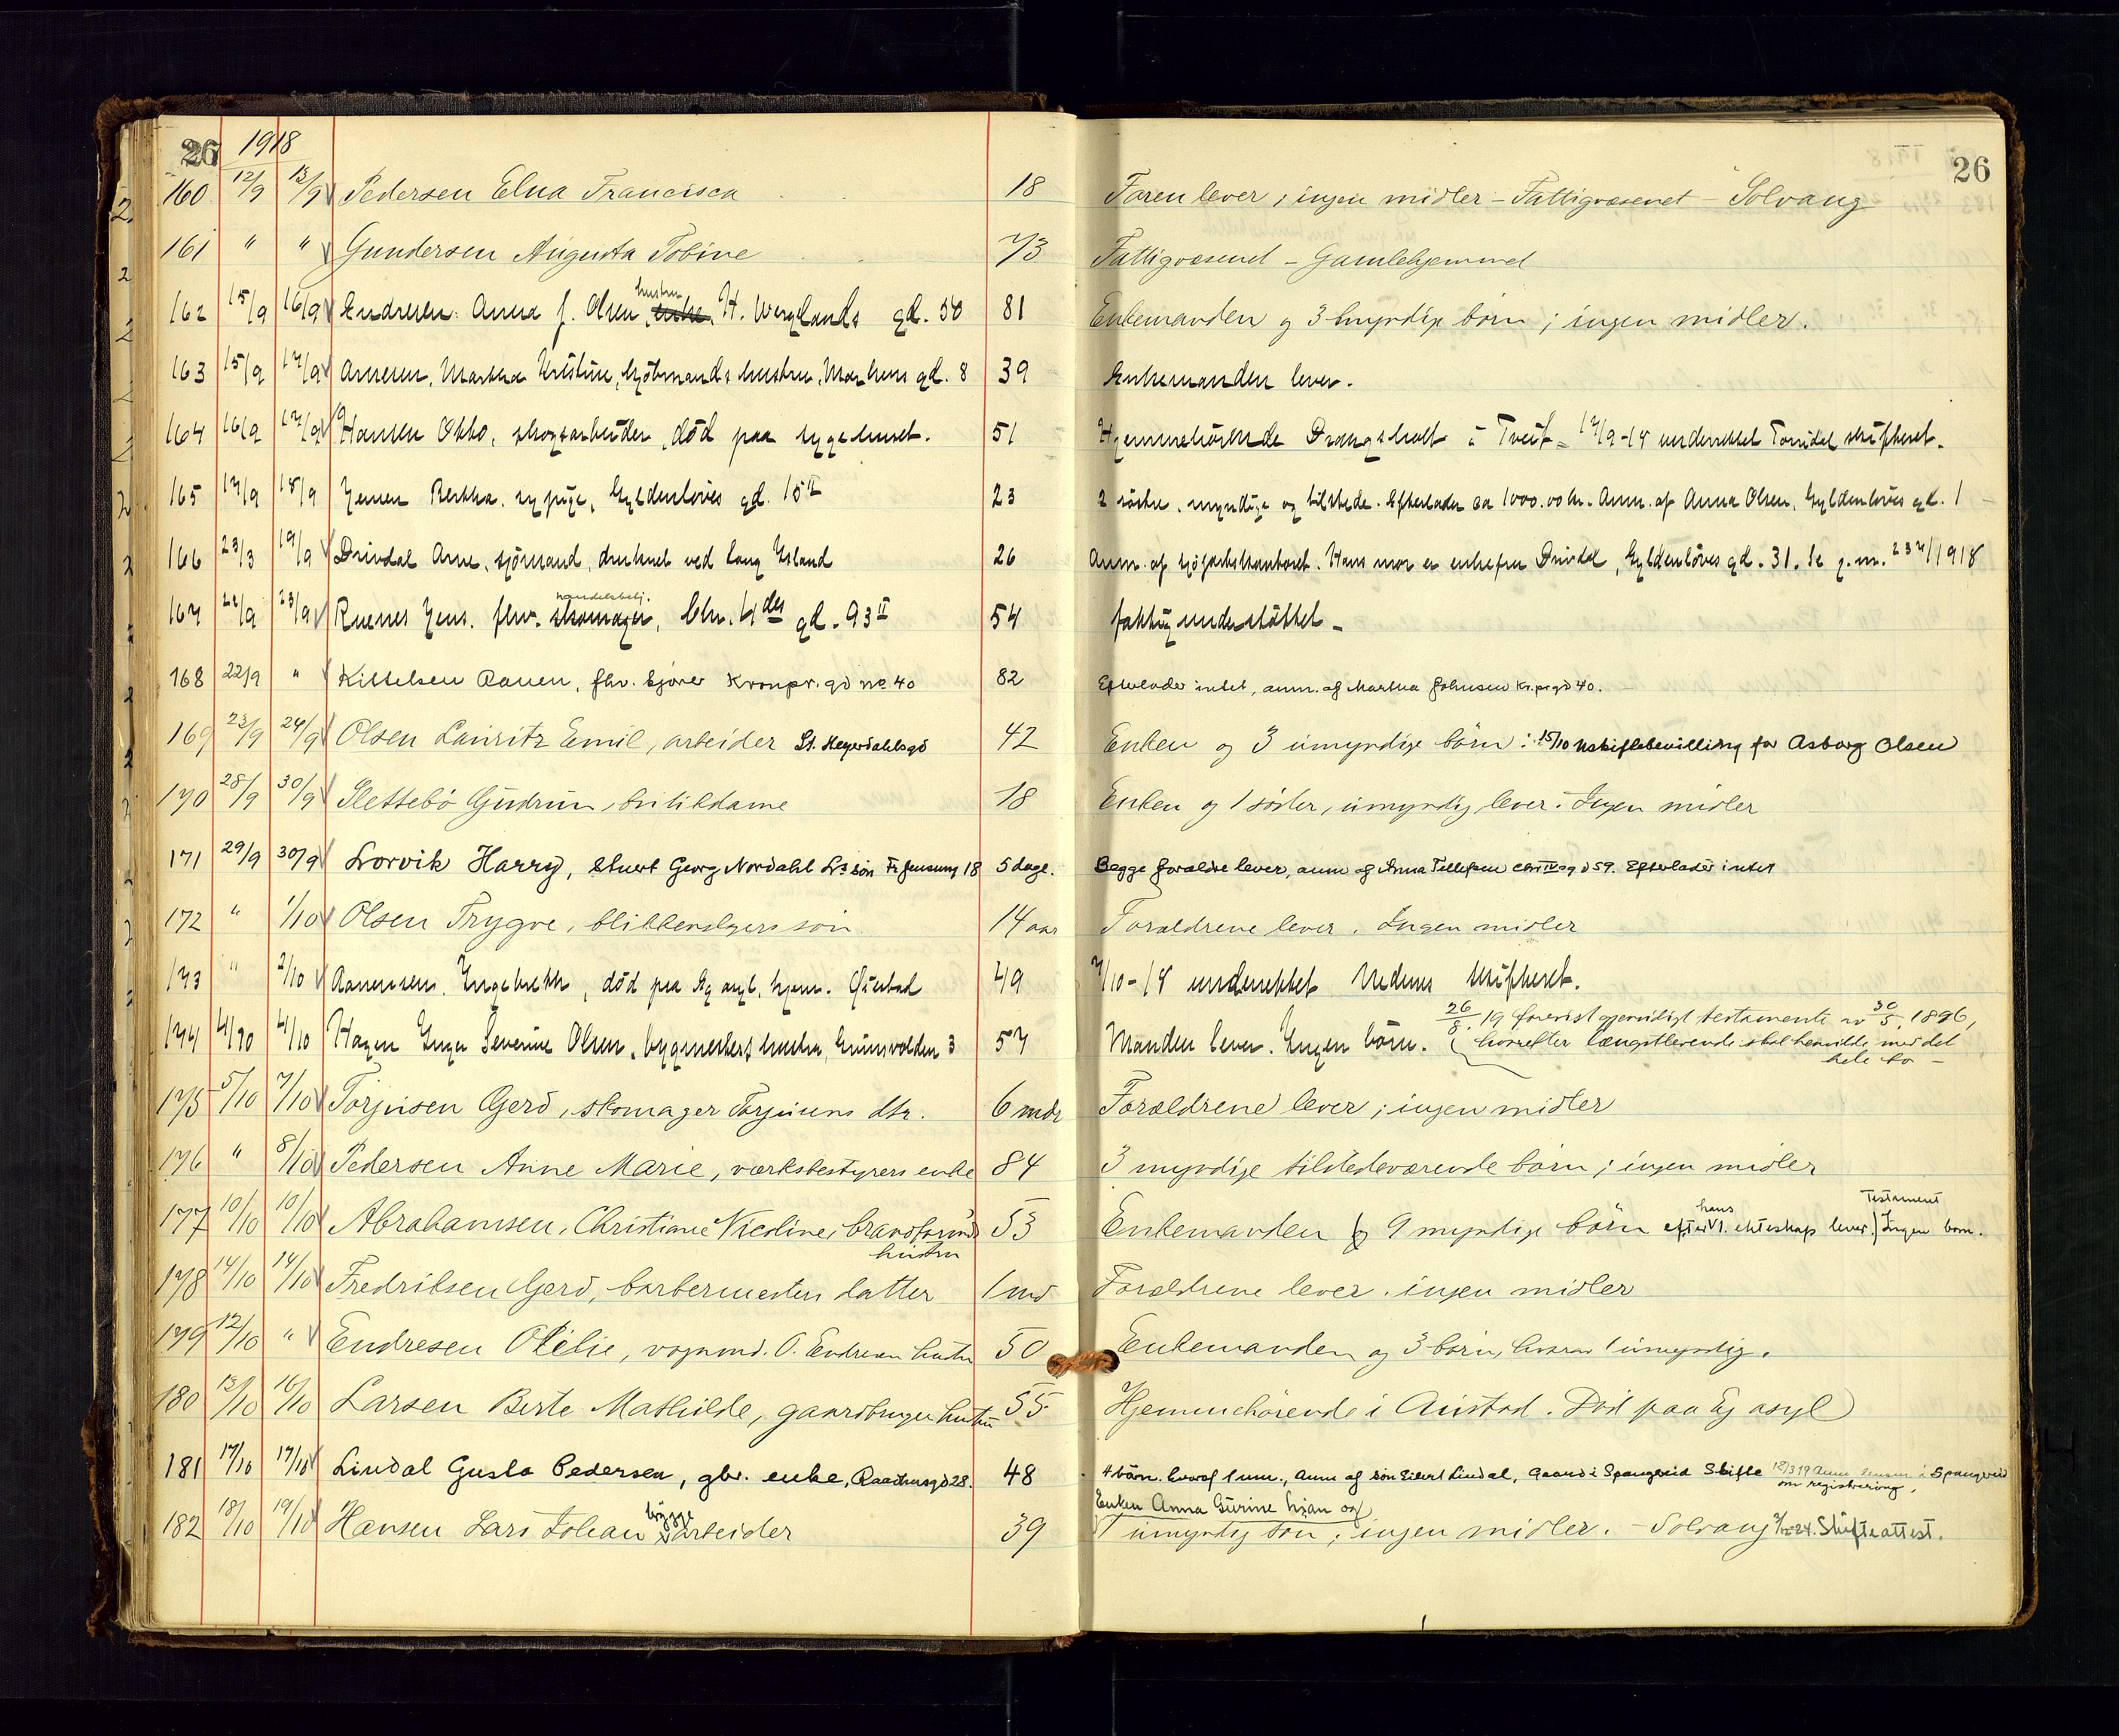 26 1918 26
160 12/9 13/9 Pedersen Elna Francisca 18 Faren lever; ingen midler - Fattigvæsenet - Solvang
161 " " Gundersen Augusta Tobine 73 Fattigvæsenet - Gamlehjemmet
hustru
162 15/9 16/9 Endresen Anna f. Olsen, enke, H. Wergelands gd. 50 81 Enkemanden og 3 myndige børn; ingen midler.
163 15/9 17/9 Arnesen, Martha Kristine, sjømands hustru, Markens gd. 8 39 Enkemanden lever.
164 16/9 17/9 Hansen Otto, skogsarbeider, død paa sygehuset. 51 Hjemmehørende Drangsholt i Tveit - 17/9-18 underrettet Torridal skifteret.
165 17/9 18/9 Jensen Bertha, sypige, Gyldenløves gd. 15 II 23 2 søstre, myndige og tilstede. Efterlader ca 1000.00 kr. Anm. af Anna Olsen, Gyldenløves gd. 1
166 23/3 19/9 Drivdal Arne, sjømand, druknet ved Long Island 26 Anm. af sjøfartskontoret. Hans mor er enkefru Drivdal, Gyldenløves gd. 31. Se g.m. 232/1918
handelsbetj.
167 22/9 23/9 Rusnes Jens. fhv. skomager, Chr. 4des gd. 93 II 54 fattigunderstøttet -
168 22/9 " Kittelsen Ranen, fhv. kjører Kronpr. gd no 40 82 Efterlader intet, anm. af Martha Johnsen Kr.pr.gd 40.
169 23/9 24/9 Olsen Lauritz Emil, arbeider St. Heyerdahlsgd 42 Enken og 3 umyndige børn: 15/10 uskiftebevilling for Asborg Olsen
170 28/9 30/9 Slettebø Gudrun, butikdame 18 Enken og 1 søster, umyndig lever. Ingen midler
171 29/9 30/9 Lorvik Harry, Stuert Georg Nordahl L's søn Fr Jensensg 18 5 dage. Begge forældre lever, anm af Anna Tellefsen Chr IV gd 59. Efterlader intet
172 " 1/10 Olsen Trygve, blikkenslagers søn 14 aar Forældrene lever. Ingen midler
173 " 2/10 Aanensen Ingebreth, død paa Eg asyl, hjem. Øiestad 49 2/10-18 underrettet Nedenes skifteret.
26/8 19 forevist gjensidigt testamente av 30/5 1896,
174 4/10 4/10 Hagen Inga Severine Olsen, bygmesters hustru, Grimsvolden 3 57 Manden lever. Ingen børn. hvorefter længstlevende skal beholde med det
hele bo -
175 5/10 7/10 Torjusen Gerd, skomager Torjusens dtr. 6 mdr Forældrene lever; ingen midler
176 " 8/10 Pedersen Anne Marie, værksbestyrers enke 84 3 myndige tilstedeværende børn; ingen midler
hans Testament
177 10/10 10/10 Abrahamsen, Christiane Nicoline, brandform's 53 Enkemanden og 9 myndige børn efter 1. ekteskap lever.) Ingen born.
hustru
178 14/10 14/10 Fredriksen Gerd, barbermesters datter 1 md Forældrene lever. ingen midler
179 12/10 " Endresen Otelie, vognmd. O. Endresens hustru 50 Enkemanden og 3 børn, hvorav 1 umyndig.
180 13/10 16/10 Larsen Berte Mathilde, gaardbruger hustru 55 Hjemmehørende i Austad. Død paa Eg asyl
181 17/10 17/10 Lindal Gusta Pedersen, gbr. enke, Raadhusgd 28. 48 4 børn. hvoraf 1 um., Anm af søn Eilert Lindal, Gaard i Spangereid Skifte 12/3 19 Anm i Spangereid
om registrering,
bygge Enken Anna Gurine hjan og
182 18/10 19/10 Hansen Lars Johan arbeider 39 1 umyndig søn; ingen midler. - Solvang 24. Skifteattest.